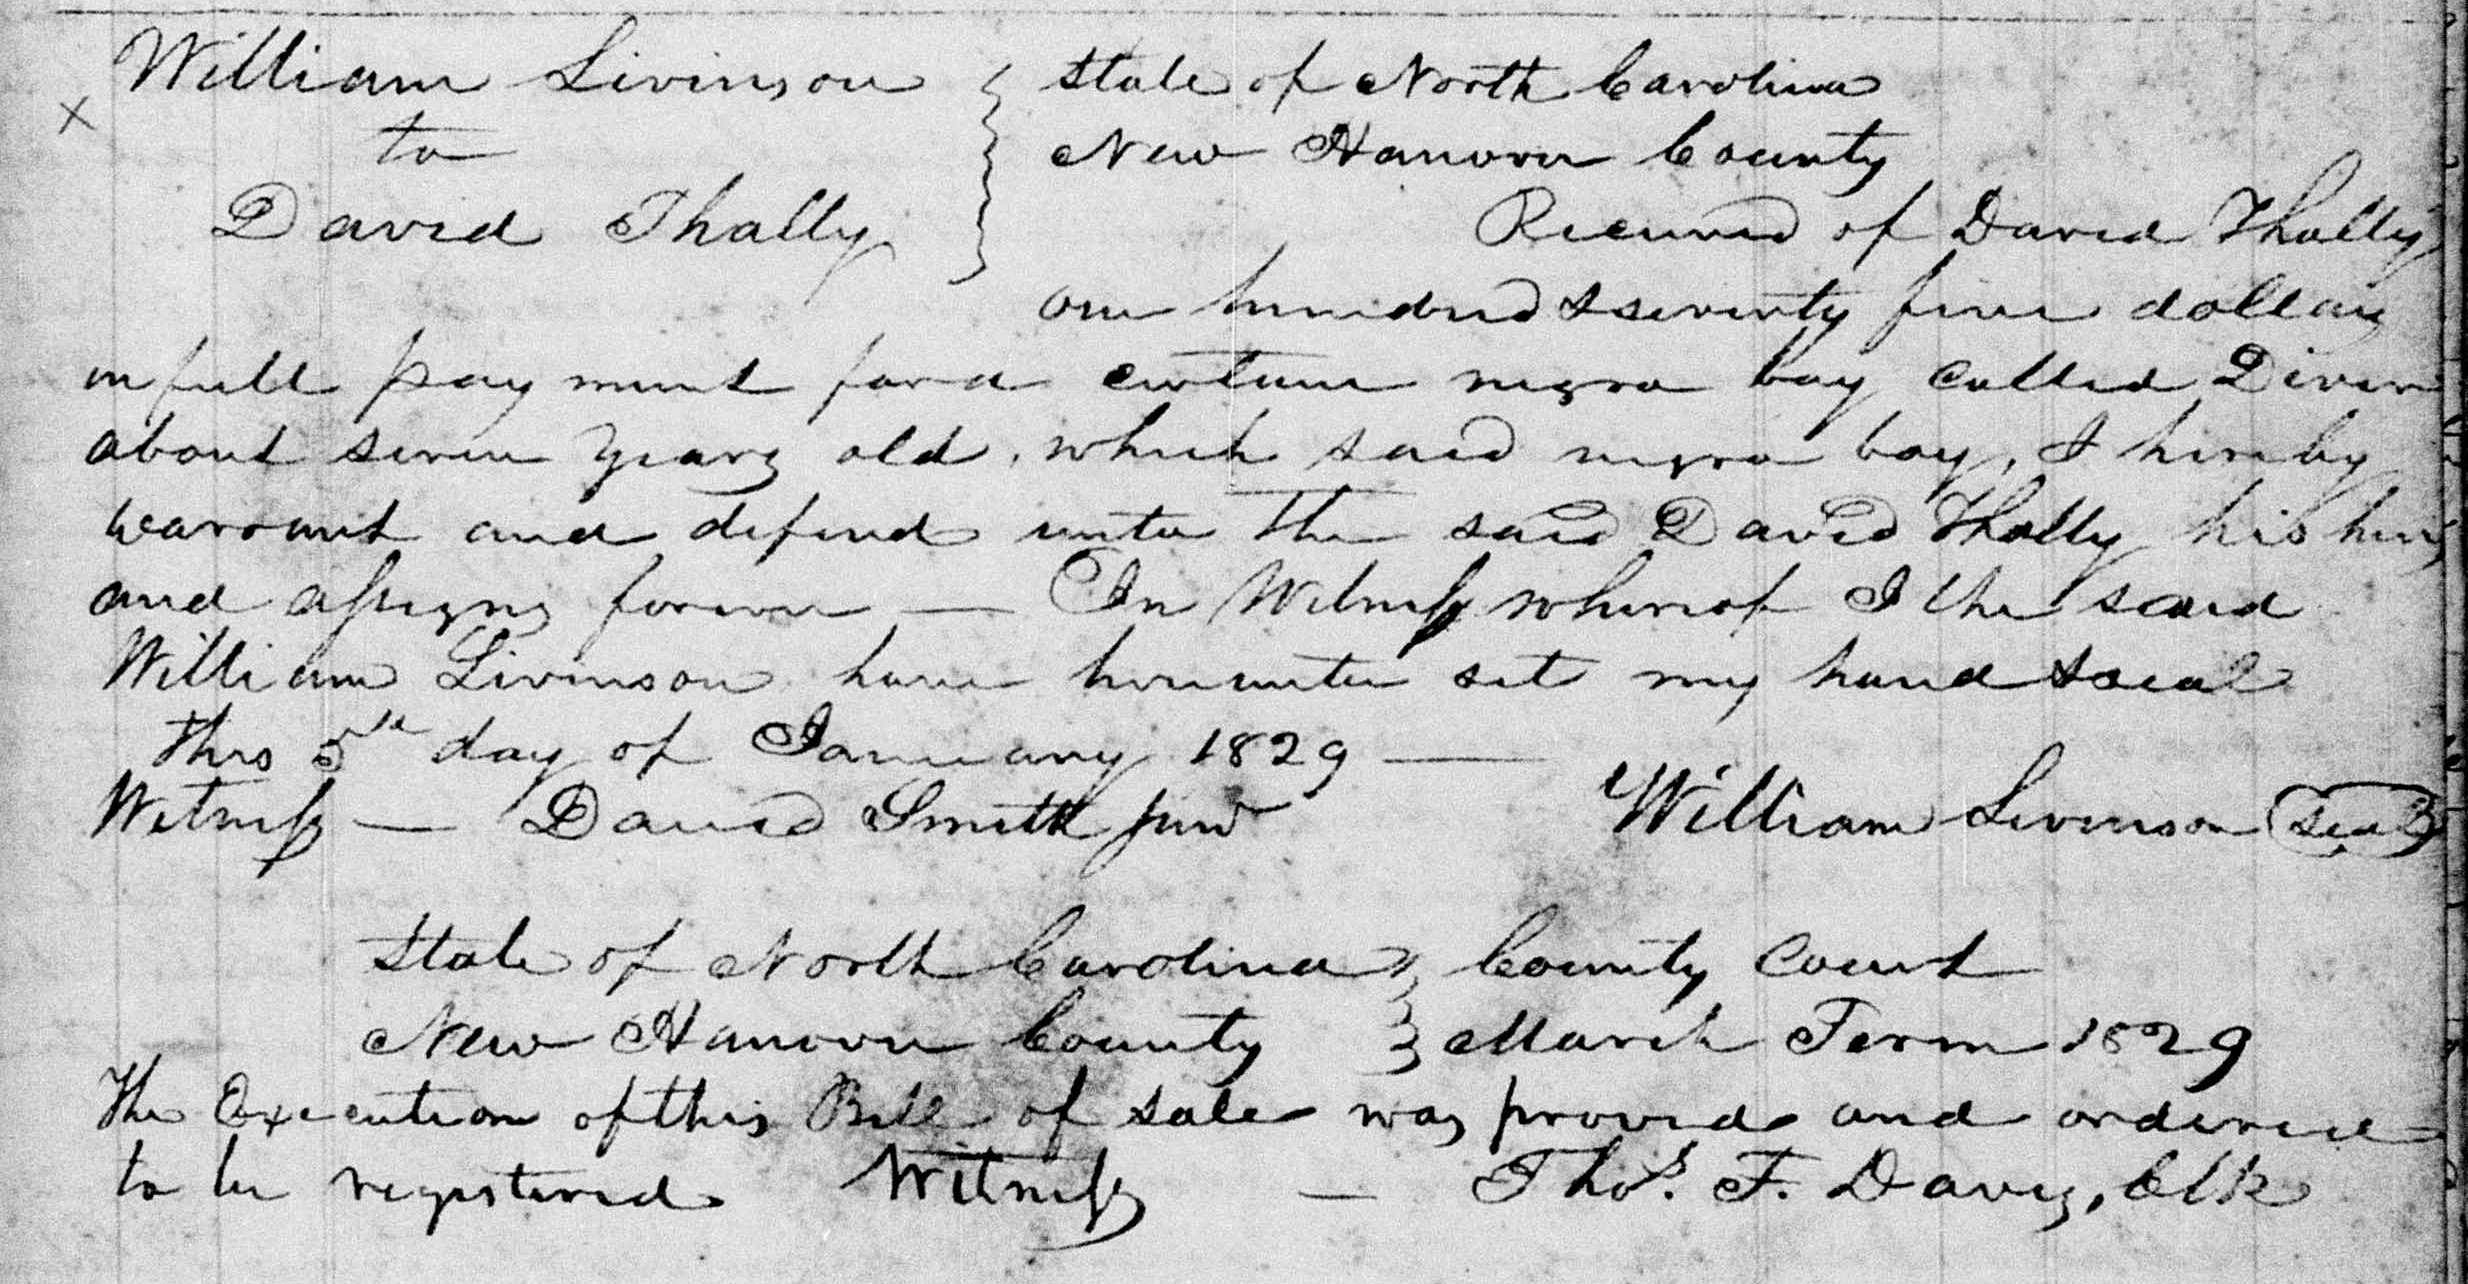 William Livinson } State of North Carolina
x
to New Hanover County
David Thally Received of David Thally
one hundred & seventy five dollars
in full payment for a certain negro boy called
about seven years old, which said negro boy, I hereby
warrant and defend unto the said David Thally his heirs
and assigns forever — In Witness whereof I the said
William Livinson have hereunto set my hand & seal
this 5th day of January 1829 —
Witness — David Smith Junr William Livinson (seal)
State of North Carolina } County Court
New Hanover County } March Term 1829
The Execution of this Bill of sale was proved and ordered
to be registered Witness — Thos. F. Davis, Clk